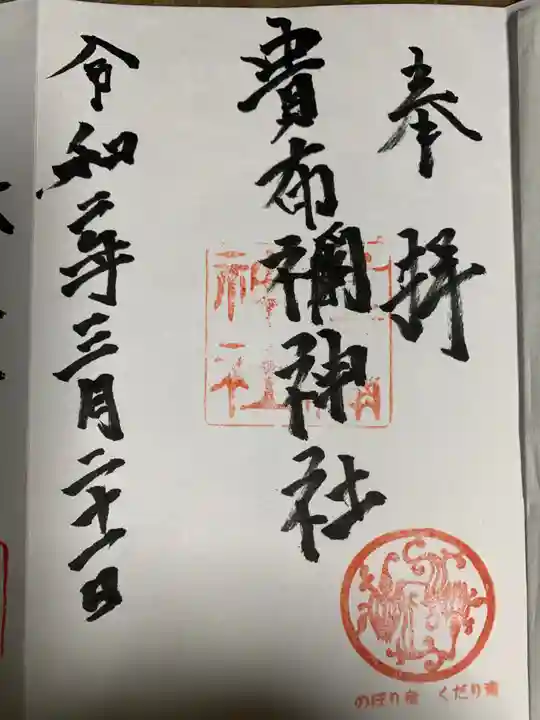 奉拝
貴布禰神社
令和二年三月二十一日
のぼり竜 くだり竜